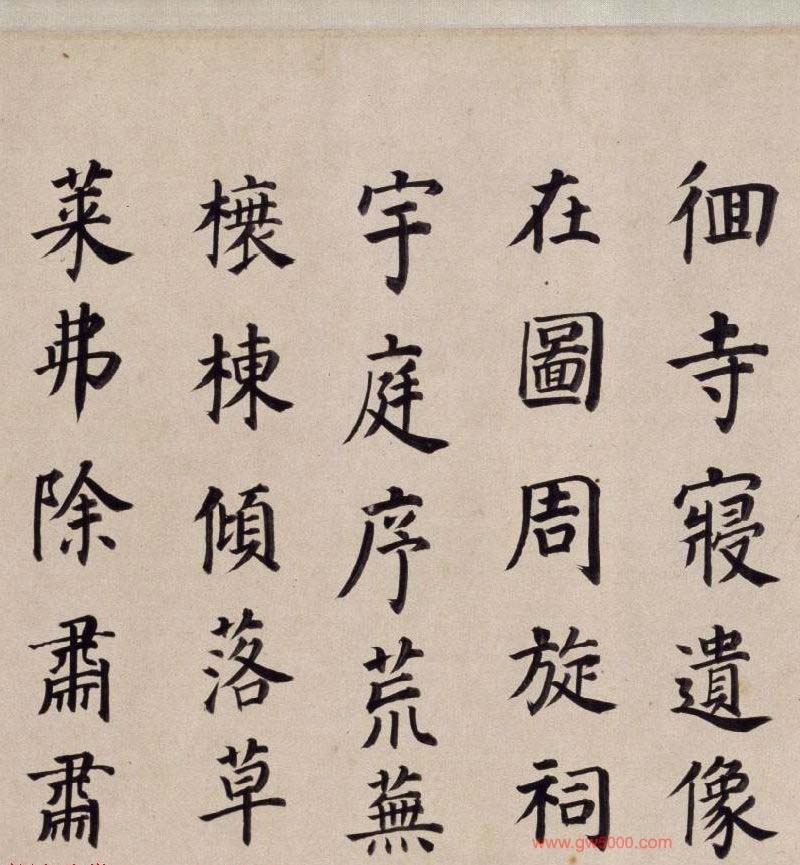 徊寺寢遺像
在圖周旋祠
宇庭序荒蕪
榱棟傾落草
莱弗除肅肅
www.gw5000.com